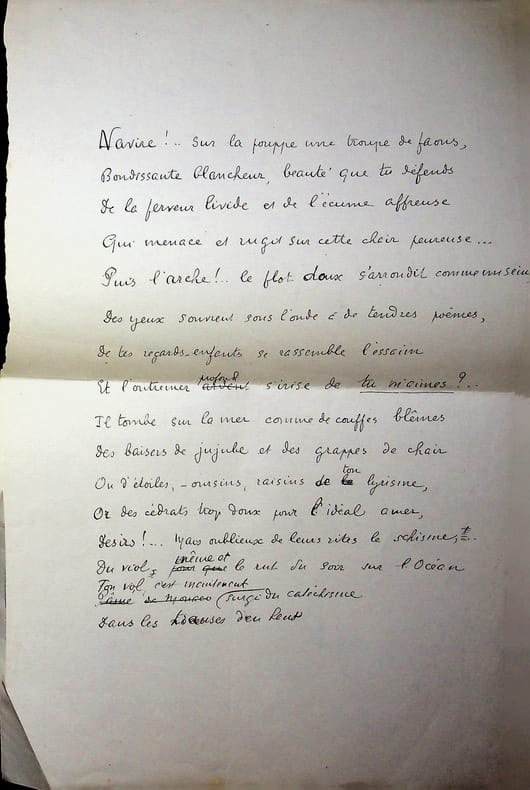 Navire !.. Sur la pouppe une troupe de faons,
Bondissante blancheur, beauté que tu défends
De la ferveur livide et de l'écume affreuse
Qui menace et rugit sur cette chair peureuse...
Puis l'arche !.. le flot doux s'arrondit comme un sein
Des yeux s'ouvrent sous l'onde à de tendres poèmes,
De tes regards-enfants se rassemble l'essaim
Et l'outremer ardent profond s'irise de tu m'aimes ?..
Il tombe sur la mer comme de couffes blêmes
Des baisers de jujube et des grappes de chair
Ou d'étoiles, - oursins, raisins de ton lyrisme,
Or des cédrats trop doux pour l'idéal amer,
Desirs !... oublieux de leurs rites le schisme,
Du viol, même et le rut du soir sur l'Océan
Ton vol, c'est maintenant
surgi du catéchisme
Dans les d'en haut